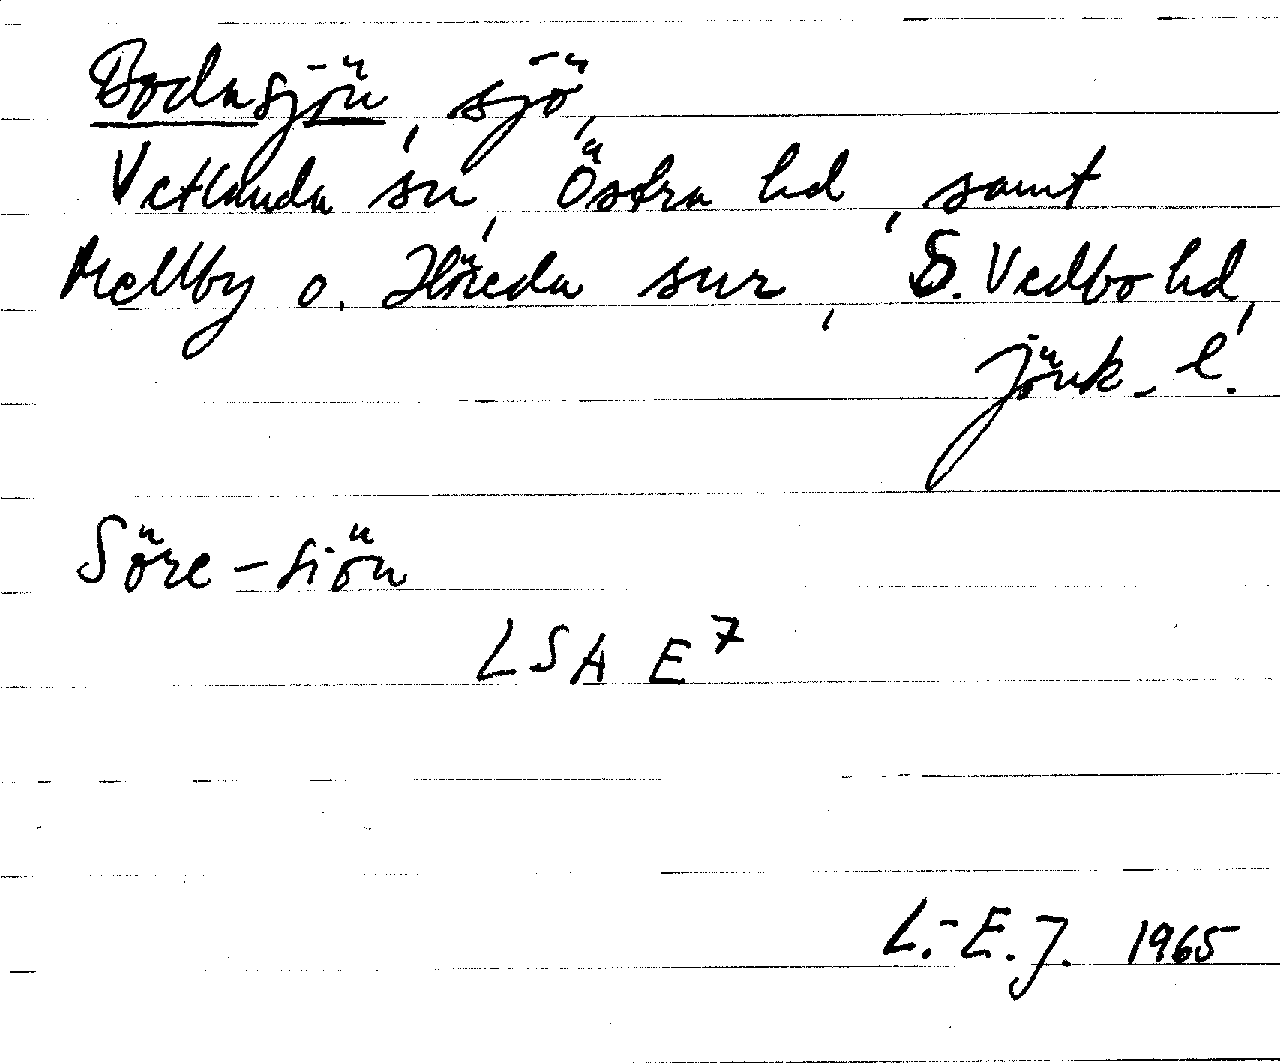 Bodasjön, sjö,
Vetlanda sn, Östra hd, samt
Mellby o. Höreda snr, S. Vedbo hd,
Jönk. l.
Söre-siön
LSA E7
L.-E.J. 1965